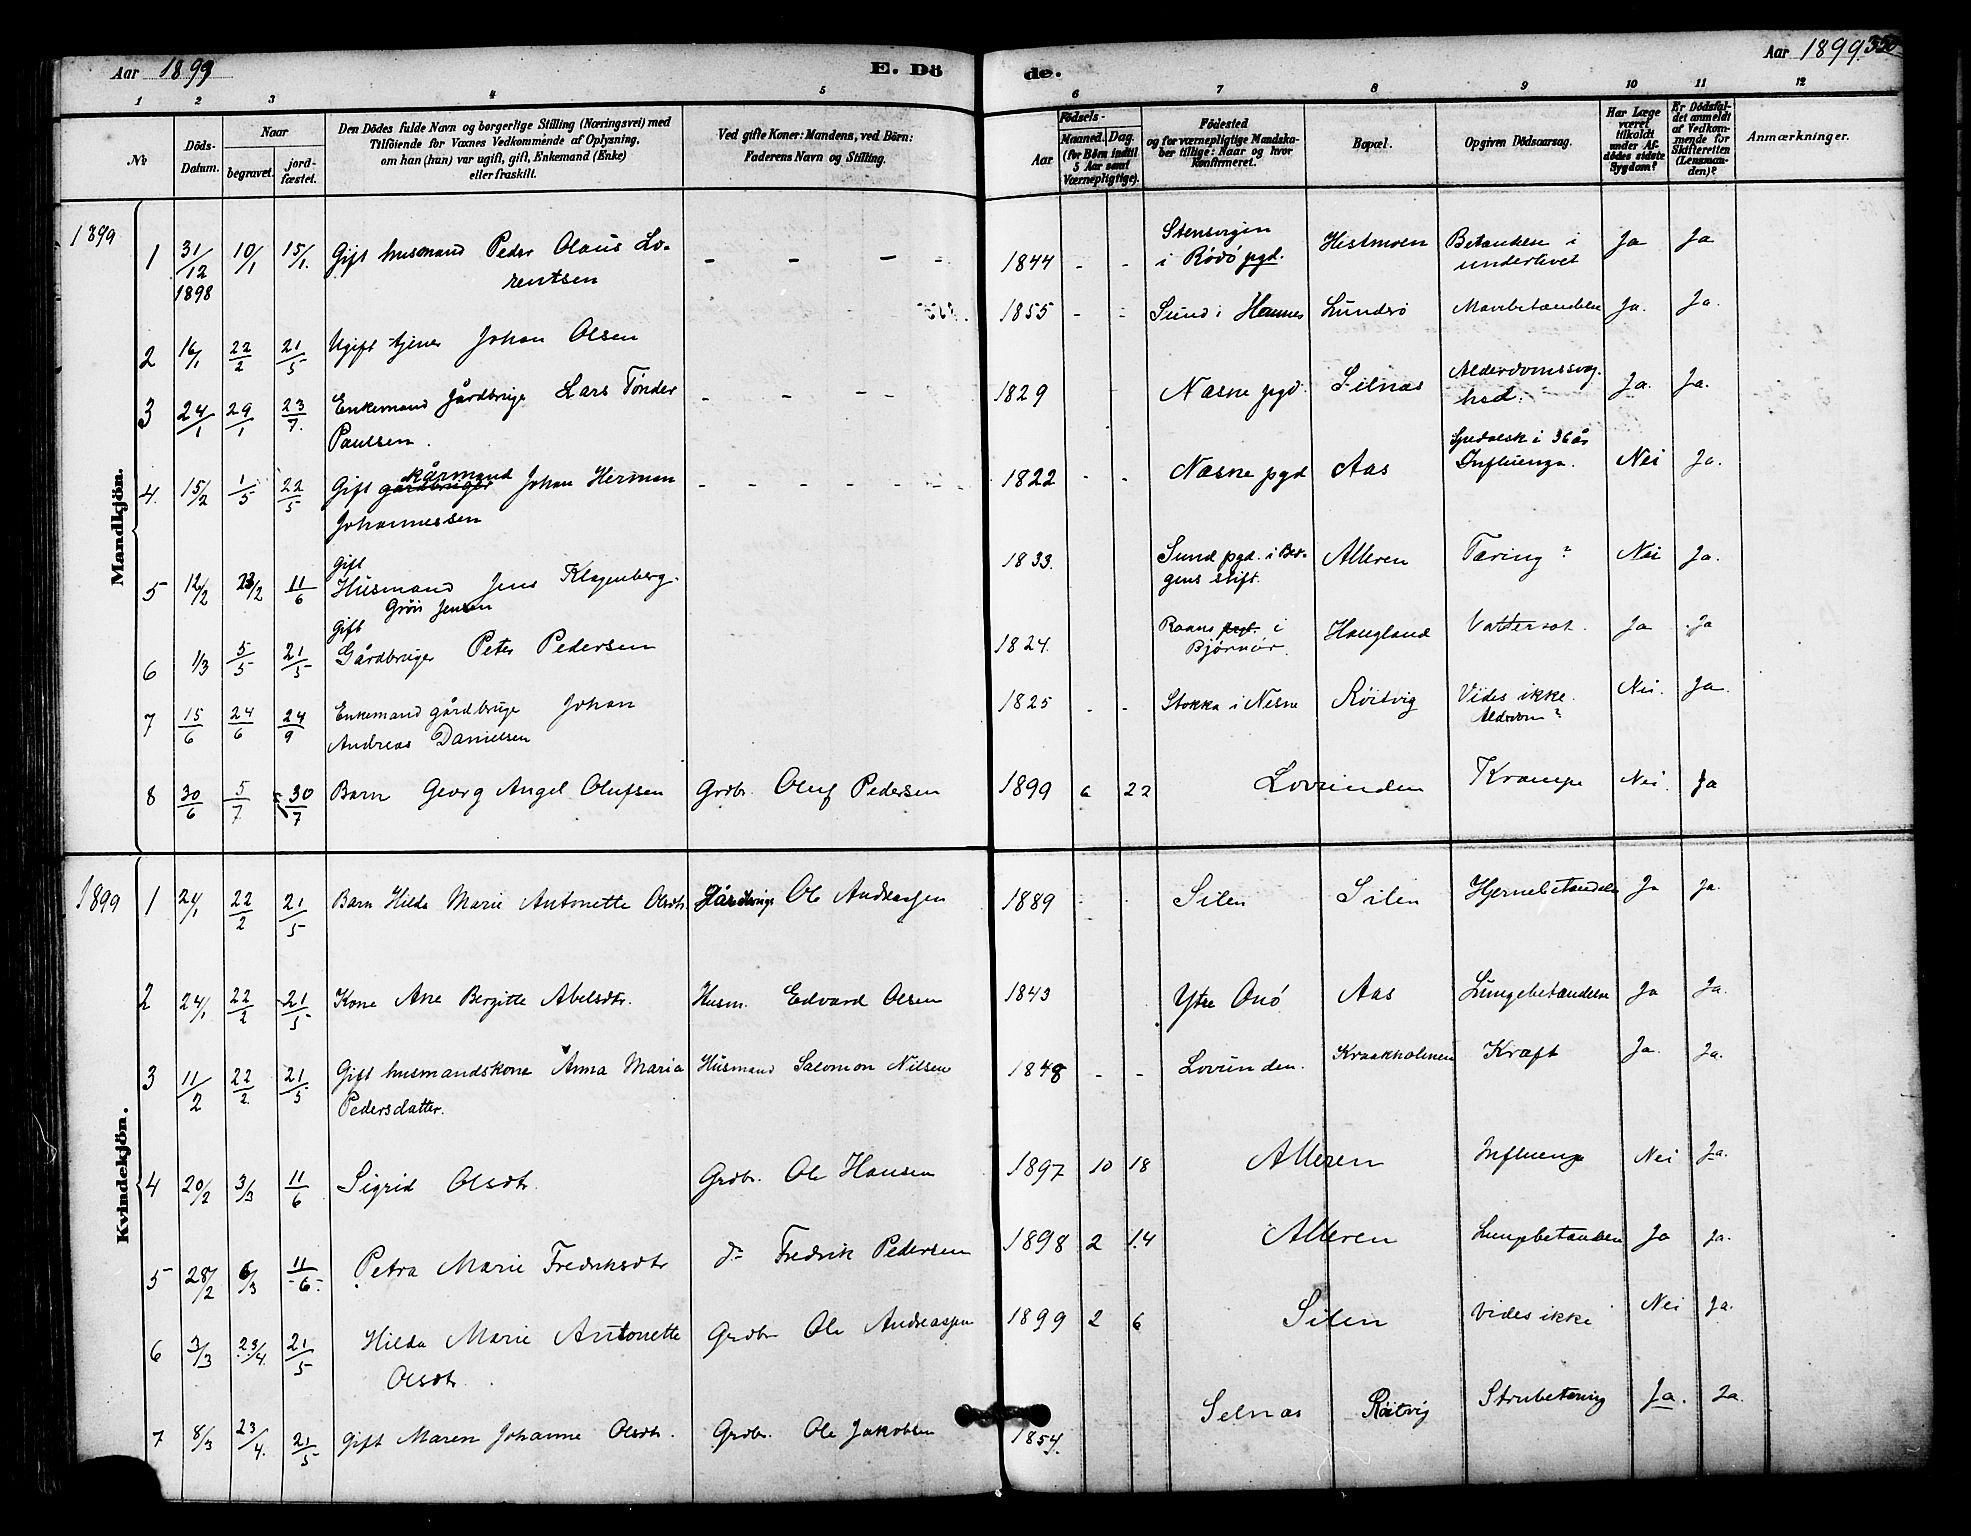 Aar 1899
E. Dö
de.
Aar 1899. 350
1 2 3 4 5 6 7 8 9 10 11 12
No
Döds-Datum.
Naar
begravet.
jord-fæstet.
Den Dödes fulde Navn og borgerlige Stilling (Næringsvei) med
Tilföiende for Voxnes Vedkommende af Oplysning,
om han (hun) var ugift, gift, Enkemand (Enke)
eller fraskilt.
Ved gifte Koner: Mandens, ved Börn:
Faderens Navn og Stilling.
Födsels-
Aar
Maaned. Dag.
(for Börn indtil
5 Aar samt
Værnepligtige).
Födested
og for værnepligtige Mandska-
ber tillige: Naar og hvor
Konfirmeret.
Bopæl.
Opgiven Dödsaarsag.
Har Læge
været
tilkaldt
under Af-
dödes sidste
Sygdom?
Er Dödsfal-
det anmeldt
af Vedkom-
mende for
Skifteretten
(Lensman-
den)?
Anmærkninger.
Mandkjön.
1899
1 31/12 1898 10/1 15/1 Gift husmand Peder Olaus Lo-
rentsen
- - - - 1844 - - Stensvigen
i Rödö pgd. Hestmoen Betændelse i
underlivet Ja Ja
2 16/1 22/2 21/5 Ugift tjener Johan Olsen 1855 - - Sund i Hemnes Lundsø Mavebetændelse Ja. Ja.
3 24/1 29/1 23/7 Enkemand gårdbruge Lars Tönder
Paulsen.
- - - - 1829 - Næsne pgd. Selnæs Alderdomssvag-
hed. Ja. Ja.
4. 15/2 1/5 22/5 Gift gårdbruger kårmand Johan Herman
Johannessen
- - - - - - - 1822 - - Næsne pgd Aas Spedalsk i 36 år
Influenza. Nei Ja.
5 12/2 23/2 11/6 Gift
Husmand Jens Klagenberg
Grön Jensen
1833. Sund pgd. i Ber-
gens stift. Alteren Tæring? Nei Ja.
6 1/3 5/5 21/5 Gift
Gårdbruger Peter Pedersen 1824. Roans pgd. i
Bjørnør. Haugland Vattersot. Ja Ja
7 15/6 24/6 24/9 Enkemand gårdbruge Johan
Andreas Danielsen 1825 - - Stokka i Nesne Röitvig Vides ikke.
Alderdom? Nei. Ja.
8 30/6 5/7 30/7 Barn Georg Angel Olufsen Grdbr. Oluf Pedersen 1899 6 22 Lovunden Krampe Nei. Ja
Kvindekjön.
1899
1 24/1 22/2 21/5 Barn Hilda Marie Antonette Olsdtr Gårdbruge Ole Andreassen 1889 - - Silen Silen Hjernebetændelse Ja Ja.
2 24/1 22/2 21/5 Kone Ane Bergitte Abelsdtr. Husm. Edvard Olsen 1843 Ytre Onö Aas Lungebetændelse Ja Ja.
3 11/2 22/2 21/5 Gift husmandskone Anna Maria
Pedersdatter. Husmand Salomon Nilsen 1848 - - Lovunden. Kraakholmen Kræft Ja. Ja.
4 20/2 3/3 11/6 Sigrid Olsdtr. Grdbr. Ole Hansen 1897 10 18 Alteren Influenza Nei Ja.
5 28/2 6/3 11/6 Petra Marie Fredriksdtr do Fredrik Pedersen 1898 2 14 Alteren Lungebetændelse Ja Ja.
6 3/3 23/4. 21/5 Hilda Marie Antonette
Olsdtr. Grdbr Ole Andreassen 1899 2 6 Silen Vides ikke Nei Ja.
7 8/3 23/4. 21/5 Gift Maren Johanne Olsdtr. Grdbr. Ole Jakobsen 1854. Selnæs Röitvig Strubetæring Ja. Ja.